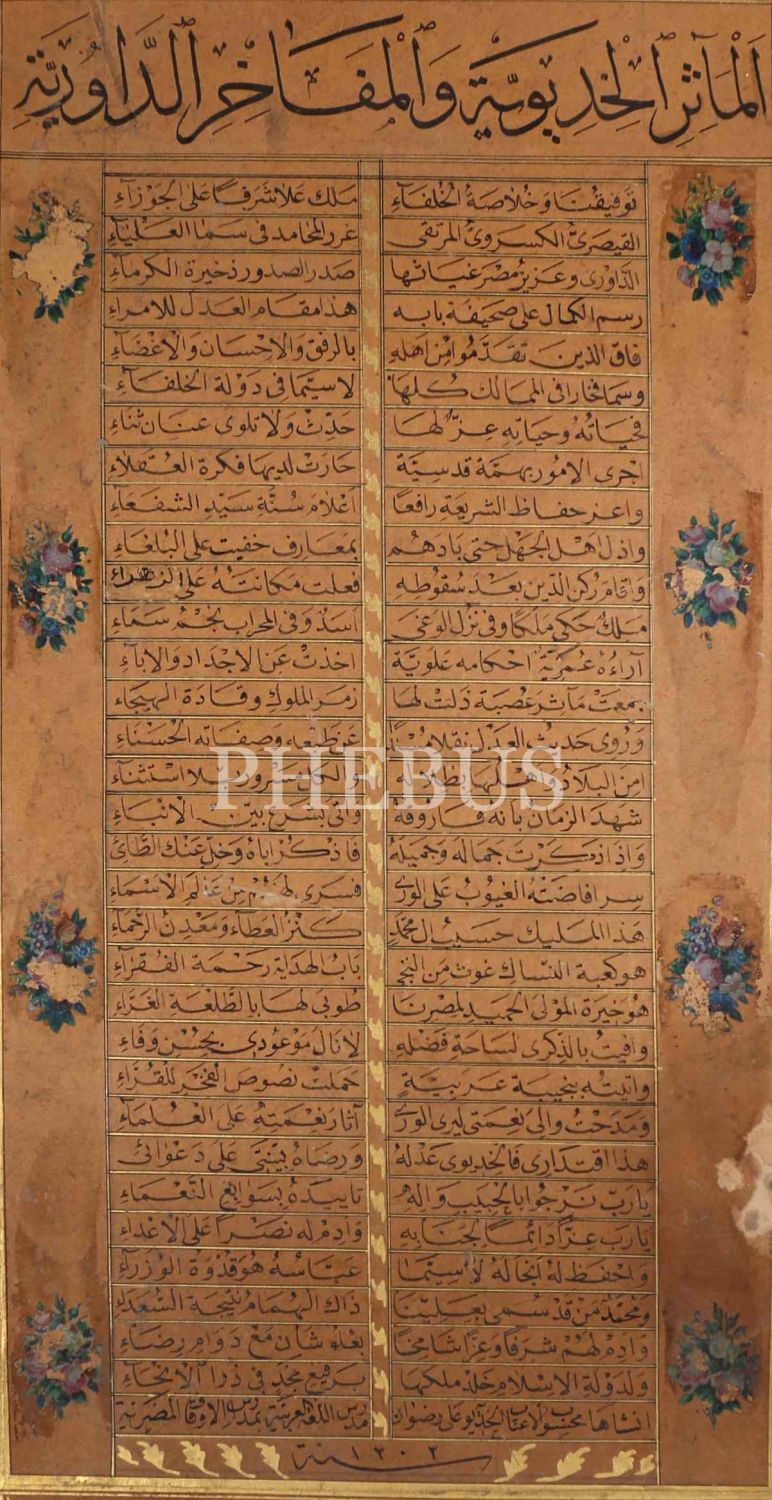 اَلْمَآثِرُ الْخِدِيوِيَّة وَالْمَفَاخِرُ الدَّاوُرِيَّة
توفيقنا وخلاصة الخلفاء ملك علا شرفا على الجوزاء
القيصرى الكسروى المرتقى غرر المحامد فى سما العلياء
الداورى وعزيز مصر غياثها صدر الصدور ذخيرة الكرماء
رسم الكمال على صحيفة بابه هذا مقام العدل للامراء
فاق الذين تقدموا من اهله بالرفق والاحسان والاغضاء
وسما فخارا فى الممالك كلها لا سيما فى دولة الخلفاء
فحياته وحياته عز لها حدث ولا تلوى عنان ثناء
اجرى الامور بهمة قدسية حارت لديها فكرة العقلاء
واعز حفاظ الشريعة رافعا اعلام سنة سيد الشفعاء
واذل اهل الجهل حتى بادهم بمعارف خفيت على البلغاء
واقام ركن الدين بعد سقوطه فعلت مكانته على الزهراء
ملك حكى ملكا وفى نزل الوغى اسد وفى المحراب نجم سماء
آراؤه عمرية احكامه علوية اخذت عن الاجداد والاباء
جمعت مآثر عصبة ذلت لها زمر الملوك وقادة الهيجاء
وروى حديث العدل نقلا عن طبعه وصفاته الحسناء
امن البلاد واهلها بظلاله والكل مسرور بلا استثناء
شهد الزمان بانه فاروقه واتى بشرع بين الانباء
واذا ذكرت جماله وجميله فاذكر اباه وخل عنك الطائ
سر افاضته الغيوب على الورى فسرى لهم من عالم الاسماء
هذا المليك حسيب ال محمد كنز العطاء ومعدن الرحماء
هو كعبة النساك غوث من التجى باب الهداية رحمة الفقراء
هو خيرة المولى الحميد لمصرنا طوبى لها بالطلعة الغراء
وافيت بالذكرى لساحة فضله لانال موعودى بحسن وفاء
واتيته بنجيبة عربية حملت نصوص الفخر للقراء
ومدحت والى نعمتى ليرى الورى آثار نعمته على العلماء
هذا اقتدارى فالخديوى عدله ورضاه يبنى على دعوائى
يارب نرجو ابالحبيب واله تاييده بسوابغ النعماء
يارب عزا دائما لجنابه وادم له نصرا على الاعداء
واحفظ له انجاله لا سيما عباسه هو قدوة الوزراء
ومحمد من قد سمى بعلينا ذاك الهمام نتيجة السعداء
وادم لهم شرفا وعزا شامخا بعلو شان مع دوام رضاء
ولدولة الاسلام خلد ملكها برفيع مجد فى ذرا الانحاء
انشاها محسوب الاعتاب الخديوية على رضوان مدرس اللغة العربية بمدارس الاوقاف المصرية
سنة ١٣٠٢
PHEBUS